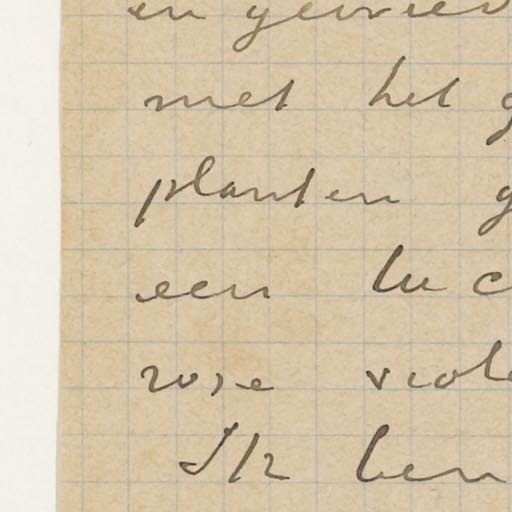 en
met het g
planten g
een luc
rose viole
Ik ben